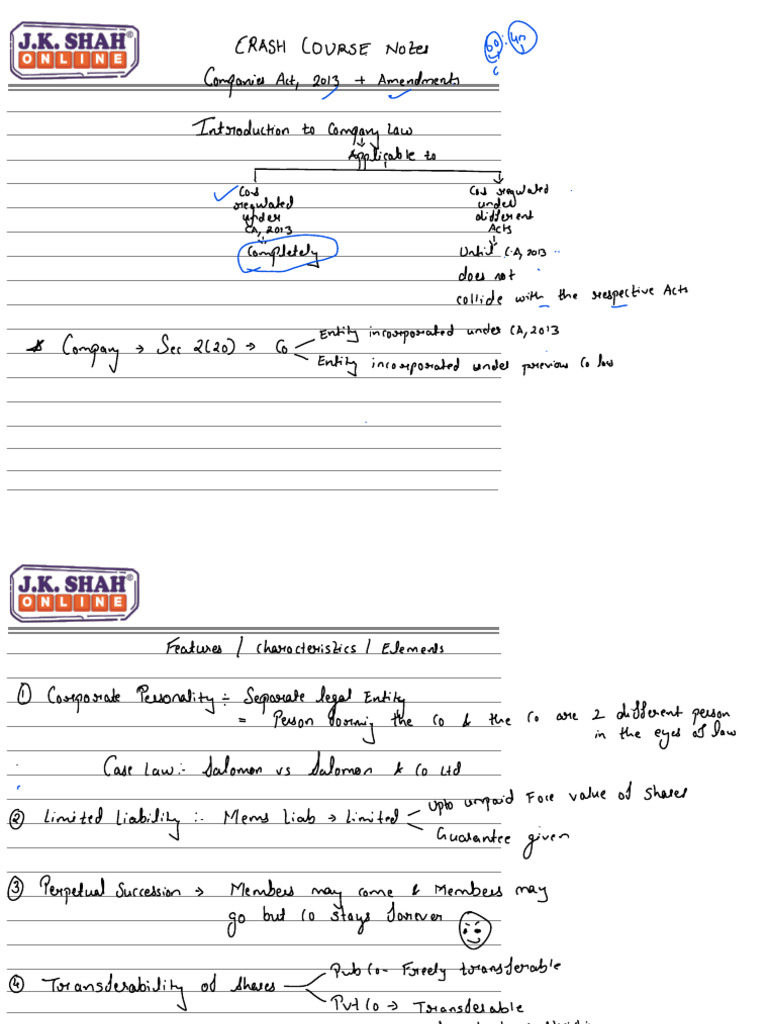 J.K. SHAH®
ONLINE
CRASH COURSE Notes
60:40
Companies Act, 2013 + Amendments
Introduction to Company Law
Applicable to
Cos regulated under CA, 2013
Completely
Cos regulated under different Acts
Until C.A, 2013 does not collide with the respective Acts
* Company → Sec 2(20) → Co
Entity incorporated under CA, 2013
Entity incorporated under previous Co law
J.K. SHAH®
ONLINE
Features / Characteristics / Elements
① Corporate Personality ÷ Separate legal Entity
= Person forming the Co & the Co are 2 different person in the eyes of law
Case Law :- Salomon vs Salomon & Co Ltd
② Limited Liability :- Mems Liab → Limited
Upto unpaid Face value of shares
Guarantee given
③ Perpetual Succession → Members may come & Members may
go but Co stays forever
④ Transferability of shares
Pub Co - Freely transferable
Pvt Co → Transferable